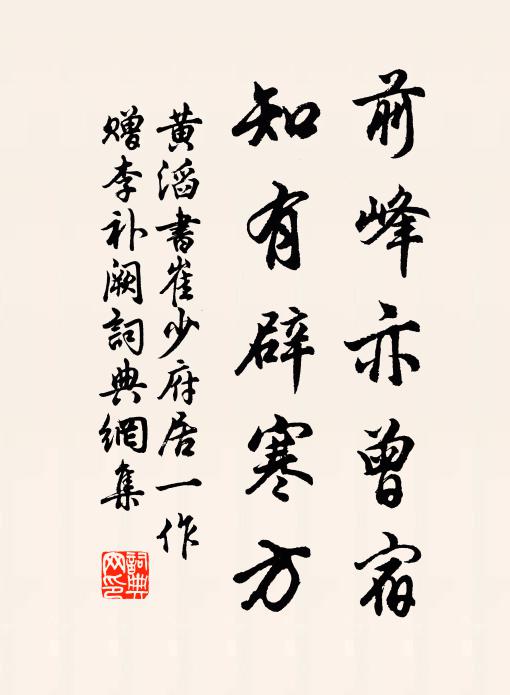 前峰亦曾宿
知有辟寒方
黄滔書崔少府居一作
贈李补阙詞典網集
詞典网印